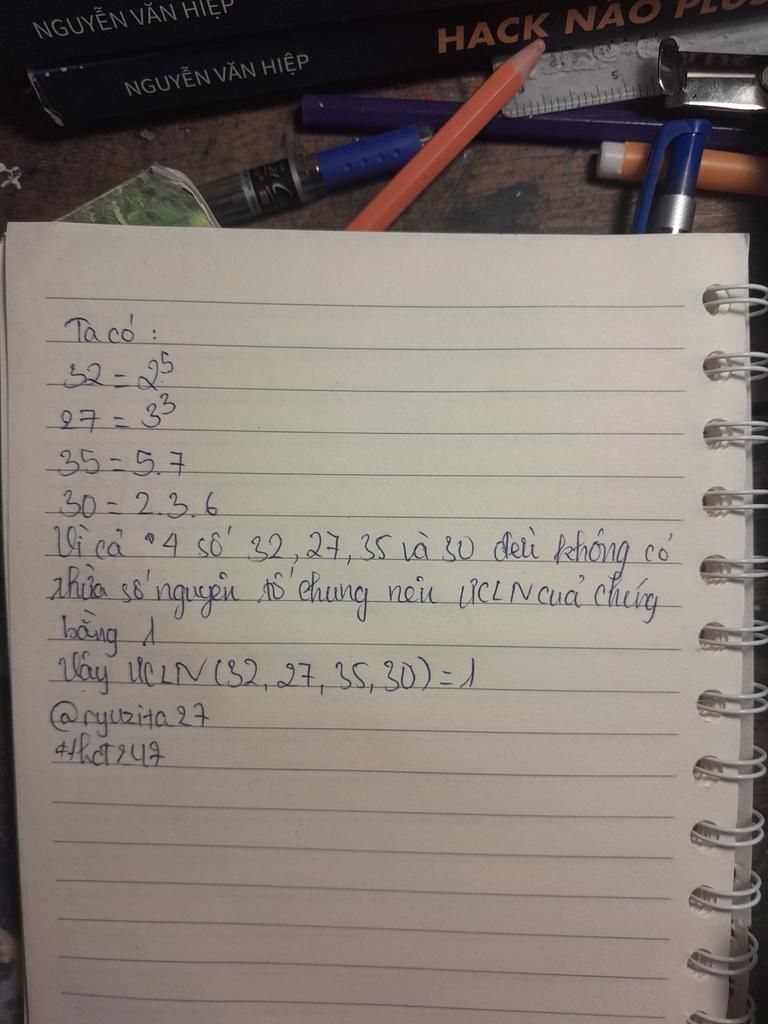 NGUYỄN VĂN HIỆP
HACK NÃO PLUS
NGUYỄN VĂN HIỆP
Ta có :
32 = 2⁵
27 = 3³
35 = 5.7
30 = 2.3.6
Vì cả 4 số 32, 27, 35 và 30 đều không có
thừa số nguyên tố chung nên ƯCLN của chúng
bằng 1
Vậy ƯCLN (32, 27, 35, 30) = 1
@ryuzita27
#hot247